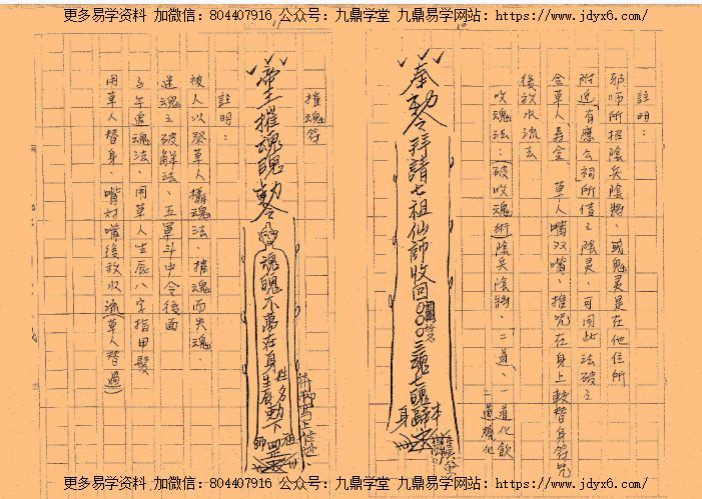 更多易学资料 加微信：804407916 公众号：九鼎学堂 九鼎易学网站：https://www.jdyx6.com/
註明：
邪师所招陰兵陰將、或鬼灵是在他住所
附近有應公祠所借之陰灵、可用此法破之
念草人、寿金、草人嘴双嘴、推咒在身上
後放水流去
收魂法：(破收魂術)陰兵陰將、二道、一道化飲
一道燒化
奉勅令拜請七祖仙師收回○○○三魂七魄歸本身
摧魂符
帝王摧魂魄勅令
魂魄不离在身
姓名
生辰
祖師
註明：
被人以祭草人攝魂法、摧魂而失魂、
送魂之破解法、五軍斗中令後面
多年追魂法、用草人生辰八字指甲髮
用草人替身、嘴对嘴後放水流(草人替過)
更多易学资料 加微信：804407916 公众号：九鼎学堂 九鼎易学网站：https://www.jdyx6.com/